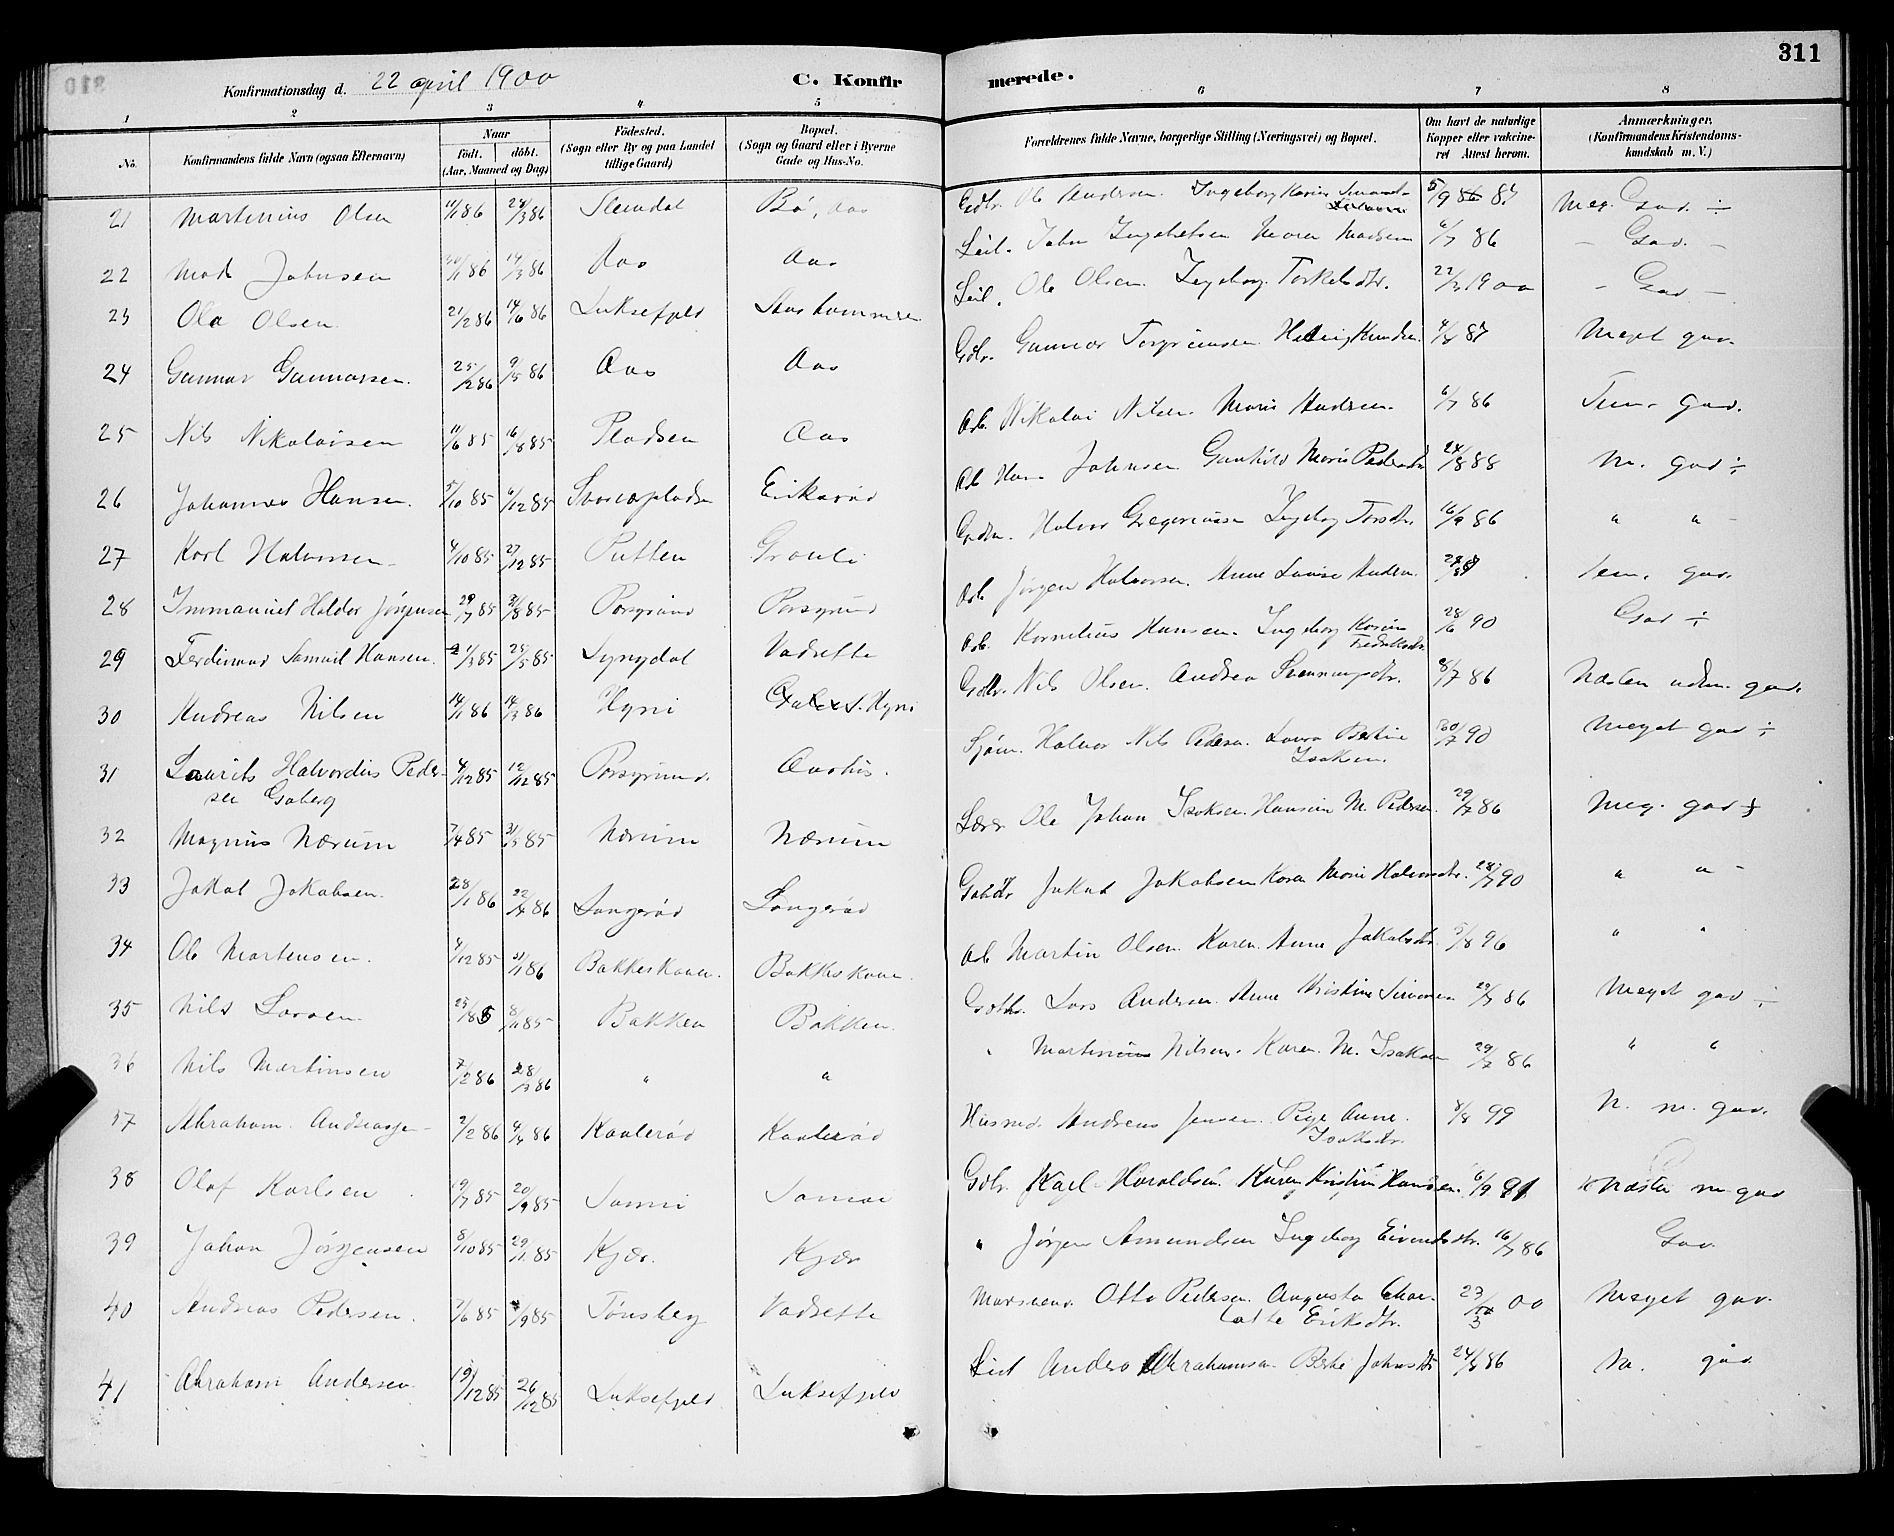 311
Konfirmationsdag d. 22 april 1900 C. Konfirmerede.
1 2 3 4 5 6 7 8
No. Konfirmandens fulde Navn (ogsaa Efternavn) Naar født. døbt. (Aar, Maaned og Dag) Fødested. (Sogn eller By og paa Landet tillige Gaard) Bopæl. (Sogn og Gaard eller i Byerne Gade og Hus-No. Forældrenes fulde Navne, borgerlige Stilling (Næringsvei) og Bopæl. Om havt de naturlige Kopper eller vakcineret Attest herom. Anmærkninger. (Konfirmandens Kristendomskundskab m. V.)
21 Martinius Olsen 11/1 86 28/3 86 Slemdal Bö, Aas Gdbr. Ole Andersen. Ingeborg Karine 5/9 87 Meg. God ÷
22 Mad Johnsen 30/1 86 14/3 86 Aas Aas Leil. John Ingebretsen Maren Madsen 6/7 86 – God. –
23 Ole Olsen 21/2 86 14/6 86 Luksefjeld Leil. Ole Olsen. Ingeborg Torkelsdtr. 22/3 1900 – God –
24 Gunnar Gunnarsen. 25/2 86 9/5 86 Aas Aas Gdbr. Gunnar Torgrimsen Helvig Knudsen. 4/8 87 Meget god.
25 Nils Nikolaisen 11/6 85 16/8 85 Pladsen Aas Arb. Nikolai Nilsen. Maria Andersen. 6/7 86 Tem. god.
26 Johannes Hansen. 5/10 85 6/12 85 Eriksrød Arb Hans Johnsen Gunhild Marie Pedersdtr 24/8 88 M. god ÷
27 Karl Halvorsen 4/10 85 27/12 85 Putten Grauli Halvor Gregoriussen Ingeborg Torsdtr. 16/9 86 " " –
28 Immanuel Haldor Jørgensen 29/7 85 31/8 85 Porsgrund Porsgrund Arb Jørgen Halvorsen. Anne Lovise Andersen. tem. god.
29 Ferdinand Samuel Hansen. 1/3 85 25/5 85 Lyngdal Vadrette Arb. Kornelius Hansen. Ingeborg Karine Fredriksdtr. 28/6 90 God ÷
30 Andreas Nilsen 14/1 86 14/3 86 Hyni Hyni Gdbr. Nils Olsen. Andrea Svenningsdtr. 8/7 86 Næsten udm. god.
31 Laurits Halvordius Pedersen Gaberg 4/12 85 12/12 85 Porsgrund. Aarhus. Sjöm. Halvor Nils Pedersen. Laura Bertine Isaksen. 30/7 90 Meget god ÷
32 Magnus Nærum 7/4 85 31/5 85 Nærum Nærum Lærer Ole Johan Isaksen. Hansine M. Pedersen. 29/7 86 Meg. god ÷
33 Jakob Jakobsen. 28/1 86 22/4 86 Langerød Langerød Gaardbr Jakob Jakobsen Karen Marie Halvorsdtr. 28/7 90 " " –
34 Ole Martensen. 4/12 85 31/1 86 Bakkeskaven. Bakkeskaven. Arb Martin Olsen. Karen Anne Jakobsdtr. 5/8 96 " "
35 Nils Larsen. 23/8 85 8/11 85 Bakken Bakken. Gaardbr. Lars Andersen. Anne Kristine Simonsen 29/7 86 Meget god ÷
36 Nils Martinsen 7/2 86 28/3 86 " " " Martinius Nilsen. Karen M. Isaksen 29/7 86 " "
37 Abraham Andreassen 2/2 86 9/4 86 Kaalerød Kaalerød Husmd. Andreas Jensen. Pige Anne Isaksdtr. 8/8 99 N. m. god.
38 Olaf Karlsen 19/7 85 20/9 85 Gdbr. Karl Haraldsen. Karen Kristine Hansen. 6/9 91 Næsten m god
39 Johan Jørgensen 8/10 85 29/11 85 Kjær. Kjær " Jørgen Amundsen Ingeborg Eivindsdtr. 16/7 86 God
40 Andreas Pedersen. 7/6 85 /9 85 Tønsberg Vadrette Otto Pedersen. Augusta Charlotte Eriksdtr. 23/3 00 Meget god.
41 Abraham Andersen 19/12 85 26/12 85 Luksefjeld Luksefjeld Leil Anders Abrahamsen. Berte Johnsdtr 24/8 86 M. god